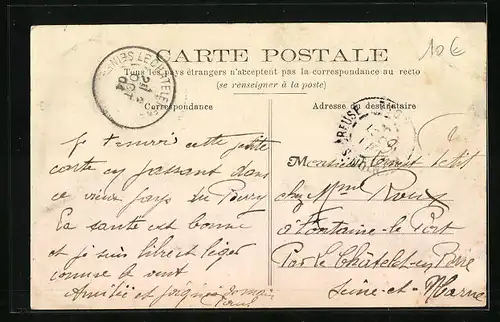 10€
CARTE POSTALE
Tous les pays étrangers n'acceptent pas la correspondance au recto
(se renseigner à la poste)
Correspondance
Adresse du destinataire
LE CHATELET
CREUSE
Je t'envoi cette petite
carte en passant dans
ce vieux pays du
La santé est bonne
et je suis libre et léger
comme le vent
Amitié et
Monsieur Petit
chez Mme Roux
à Fontaine-le-Port
Par le Châtelet-en-Brie
Seine-et-Marne